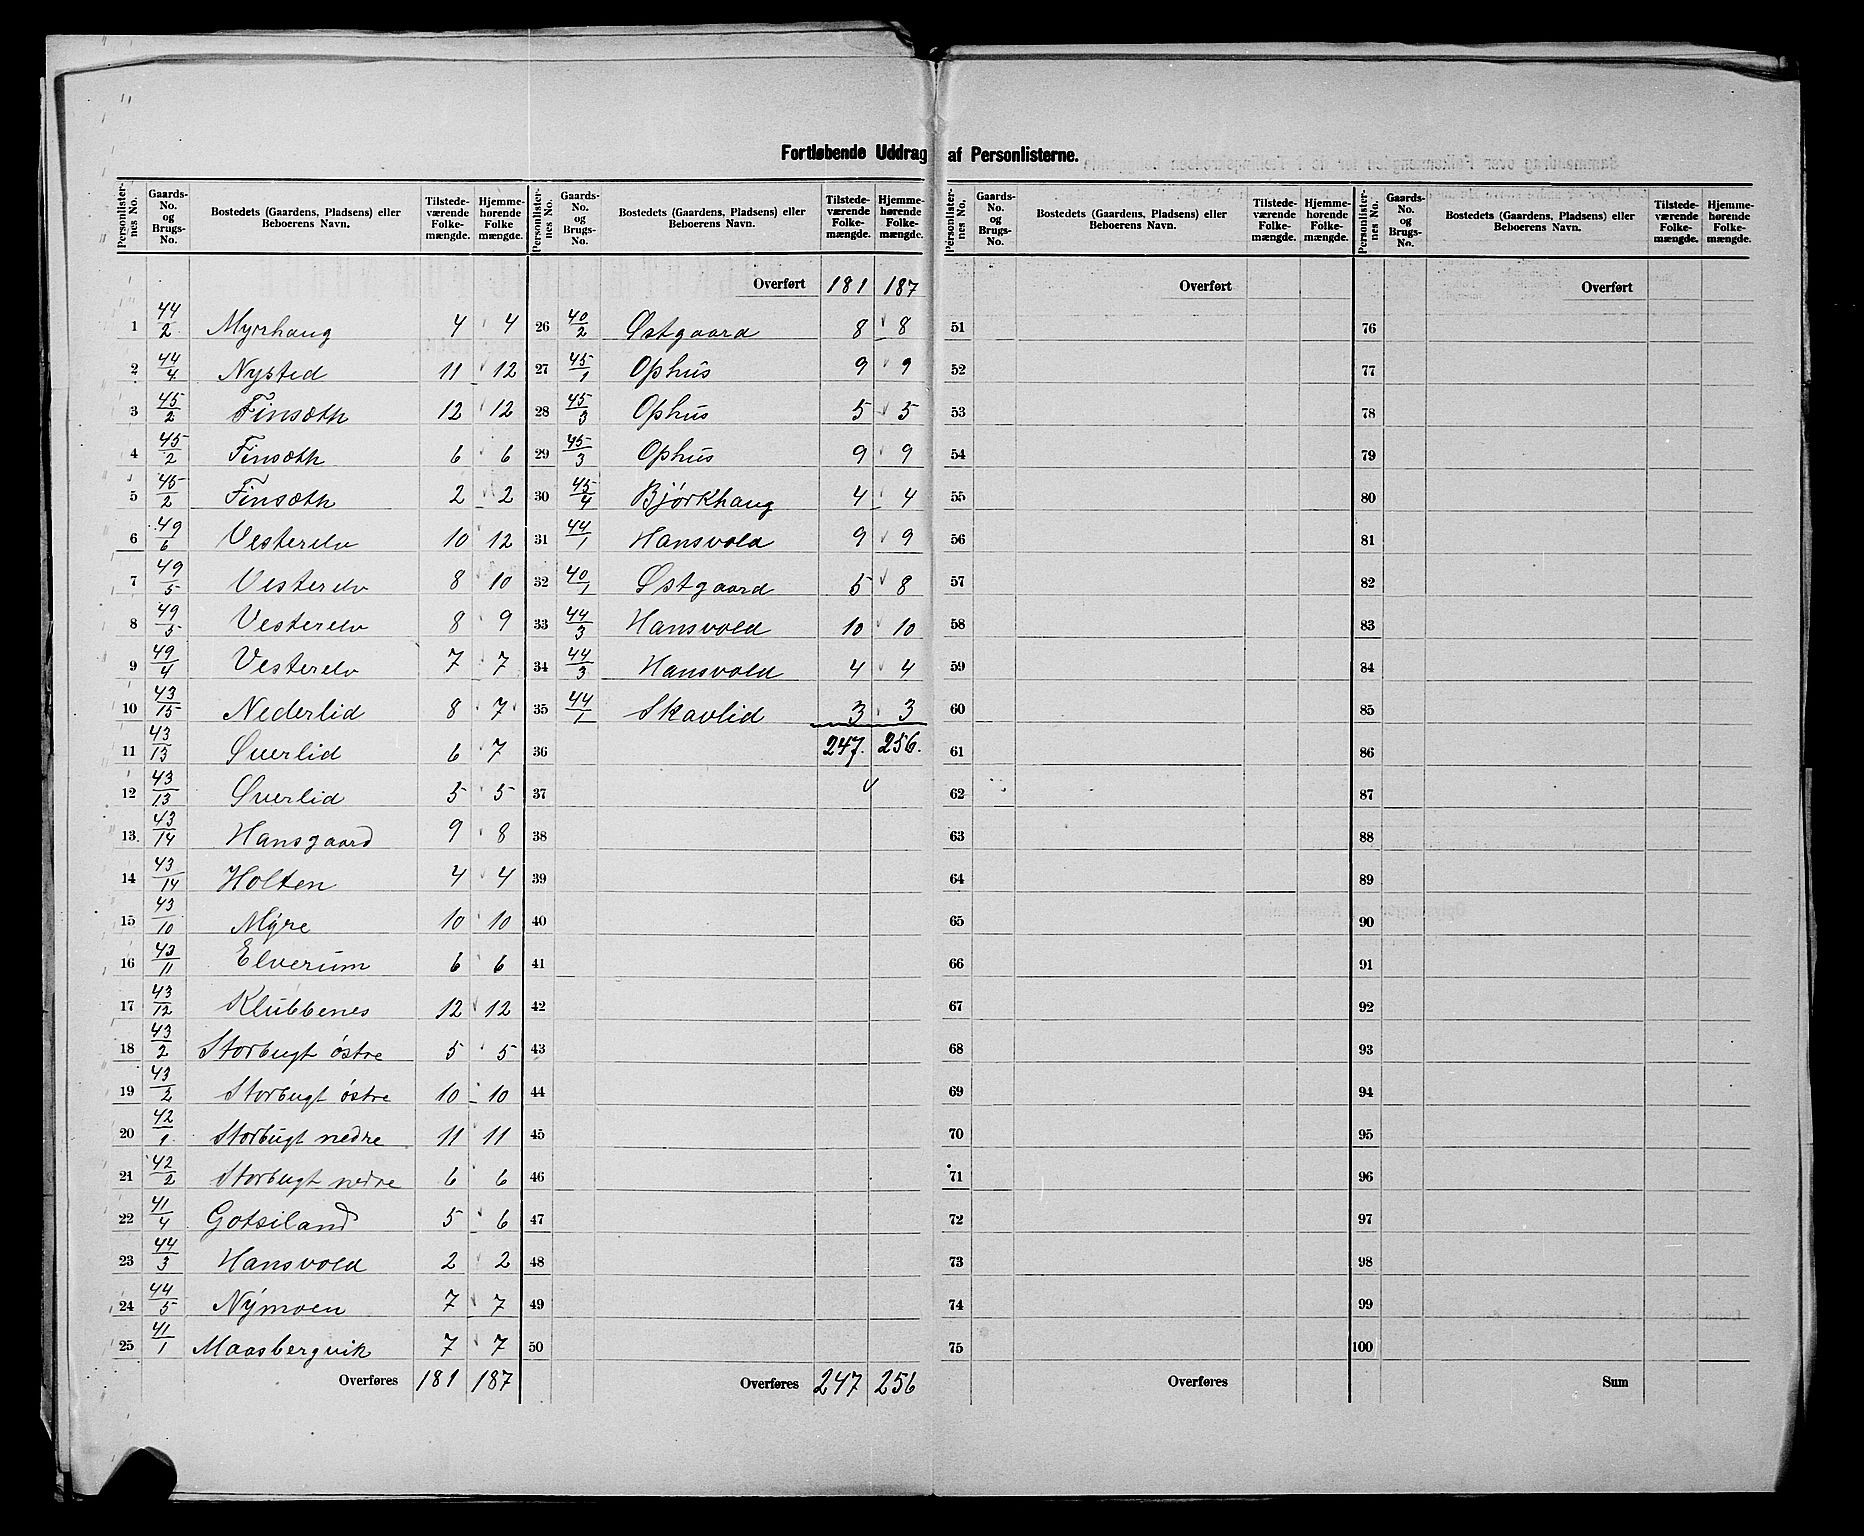 Fortløbende Uddrag af Personlisterne.
Personlisternes No. | Gaards-No. og Brugs-No. | Bostedets (Gaardens, Pladsens) eller Beboerens Navn. | Tilstedeværende Folkemængde. | Hjemmehørende Folkemængde.
1 44/2 Myrhaug 4 4
2 44/4 Nysted 11 12
3 45/2 Finsæth 12 12
4 45/2 Finsæth 6 6
5 45/2 Finsæth 2 2
6 49/6 Vesterelv 10 12
7 49/5 Vesterelv 8 10
8 49/5 Vesterelv 8 9
9 49/4 Vesterelv 7 7
10 43/15 Nederlid 8 7
11 43/13 Øverlid 6 7
12 43/13 Øverlid 5 5
13 43/14 Hansgaard 9 8
14 43/14 Holten 4 4
15 43/10 Myre 10 10
16 43/11 Elverum 6 6
17 43/12 Klubbenes 12 12
18 43/2 Storbugt østre 5 5
19 43/2 Storbugt østre 10 10
20 42/1 Storbugt nedre 11 11
21 42/2 Storbugt nedre 6 6
22 41/4 Gotsiland 5 6
23 44/3 Hansvold 2 2
24 44/5 Nymoen 7 7
25 41/1 Maasbergvik 7 7
Overføres 181 187
Personlisternes No. | Gaards-No. og Brugs-No. | Bostedets (Gaardens, Pladsens) eller Beboerens Navn. | Tilstedeværende Folkemængde. | Hjemmehørende Folkemængde.
Overført 181 187
26 40/2 Østgaard 8 8
27 45/1 Ophus 9 9
28 45/3 Ophus 5 5
29 45/3 Ophus 9 9
30 45/4 Bjørkhaug 4 4
31 44/1 Hansvold 9 9
32 40/1 Østgaard 5 8
33 44/3 Hansvold 10 10
34 44/3 Hansvold 4 4
35 44/1 Skavlid 3 3
36 247. 256.
37
38
39
40
41
42
43
44
45
46
47
48
49
50
Overføres 247 256
Personlisternes No. | Gaards-No. og Brugs-No. | Bostedets (Gaardens, Pladsens) eller Beboerens Navn. | Tilstedeværende Folkemængde. | Hjemmehørende Folkemængde.
Overført
51
52
53
54
55
56
57
58
59
60
61
62
63
64
65
66
67
68
69
70
71
72
73
74
75
Overføres
Personlisternes No. | Gaards-No. og Brugs-No. | Bostedets (Gaardens, Pladsens) eller Beboerens Navn. | Tilstedeværende Folkemængde. | Hjemmehørende Folkemængde.
Overført
76
77
78
79
80
81
82
83
84
85
86
87
88
89
90
91
92
93
94
95
96
97
98
99
100
Sum